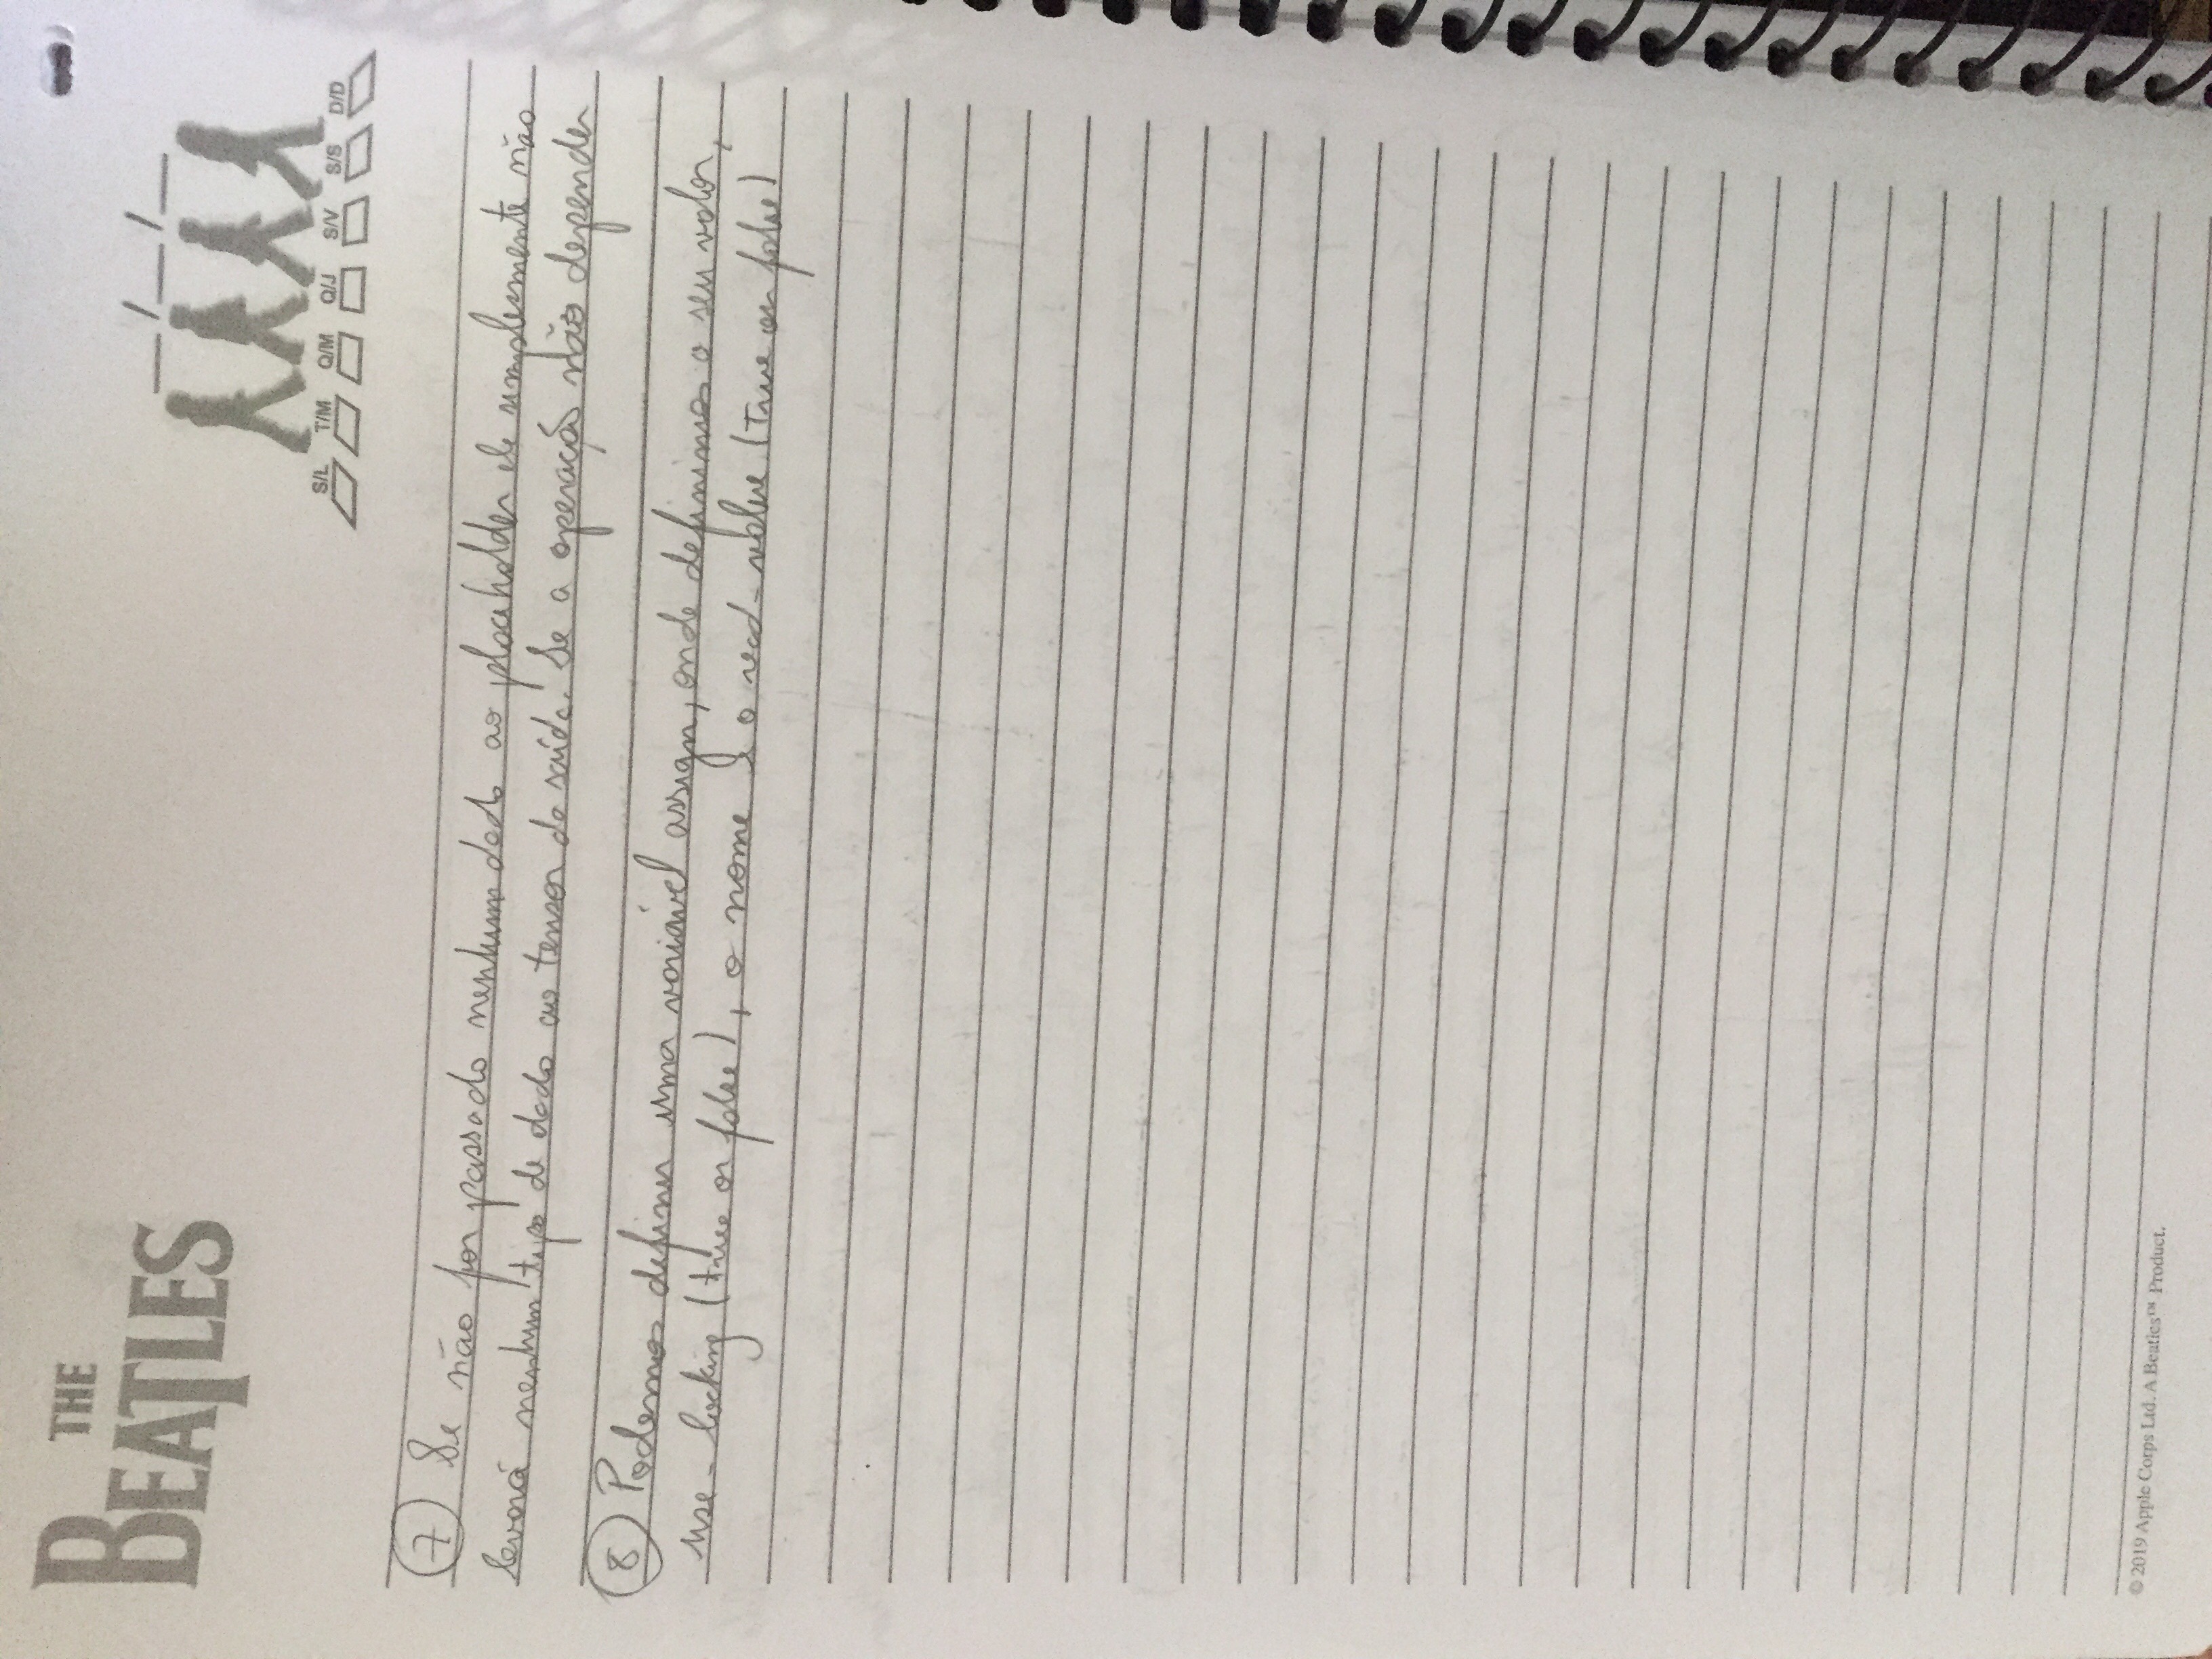 THE
BEATLES
S/L T/M Q/M Q/J S/V S/S D/D
7 Se não for passado nenhum dado ao placeholder ele simplesmente não
levará nenhum tipo de dado ao tensor da saída. Se a operação não depender
8 Podemos definir uma variável assign, onde definimos o seu valor,
use-locking (true or false), o nome e o read-value (True or false)
© 2019 Apple Corps Ltd. A Beatles™ Product.